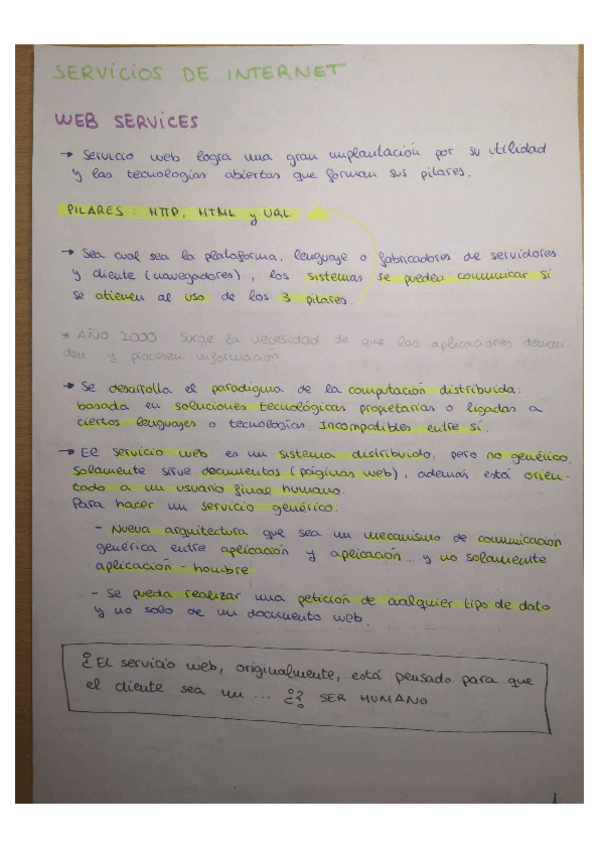 SERVICIOS DE INTERNET
WEB SERVICES
→ Servicio web logra una gran implantación por su utilidad
y las tecnologías abiertas que forman sus pilares.
PILARES : HTTP, HTML y URL
→ Sea cual sea la plataforma, lenguaje o fabricadores de servidores
y cliente (navegadores), los sistemas se pueden comunicar si
se atienen al uso de los 3 pilares.
* AÑO 2000 Surge la necesidad de que las aplicaciones deman
den y procesen información
→ Se desarrolla el paradigma de la computación distribuida:
basada en soluciones tecnológicas propietarias o ligadas a
ciertos lenguajes o tecnologías. Incompatibles entre sí.
→ El servicio web es un sistema distribuido, pero no genérico.
Solamente sirve documentos (páginas web), además está orien-
tado a un usuario final humano.
Para hacer un servicio genérico:
- Nueva arquitectura que sea un mecanismo de comunicación
genérica entre aplicación y aplicación y no solamente
aplicación - hombre
- Se pueda realizar una petición de cualquier tipo de dato
y no solo de un documento web.
¿El servicio web, originalmente, está pensado para que
el cliente sea un ... ¿? SER HUMANO